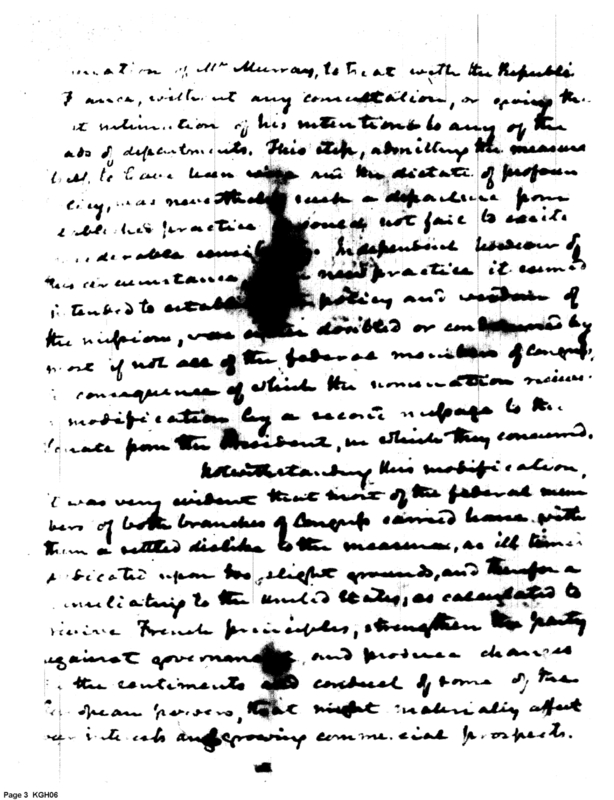 of Mr. Murray, to treat with the Republic
without any consultation, or giving the
of his intentions to any of the
of departments. This step, admitting the measure
to have been the dictate of profound
was such a departure from
practice could not fail to excite
Independent however of
this circumstance new practice it seemed
intended to policy and wisdom of
the mission, was doubted or condemned by
most if not all of the federal members of Congress,
consequence of which the nomination
modification by a second message to the
Senate from the President, in which they concurred.
Notwithstanding this modification,
it was very evident that most of the federal mem
bers of both branches of Congress carried home with
them a settled dislike to the measure, as ill timed
upon too slight grounds, and therefor
to the United States, as calculated to
French principles, strengthen the party
against government, and produce changes
the sentiments and conduct of some of the
European powers, that might materially affect
our interests and growing commercial prospects.
Page 3 KGH06